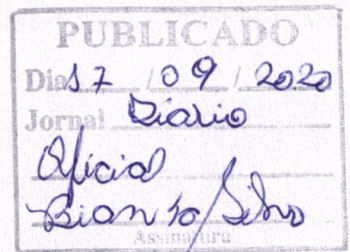 PUBLICADO
Dia 17 / 09 / 2020
Jornal Diario
Oficial
Bianca Silva
Assinatura